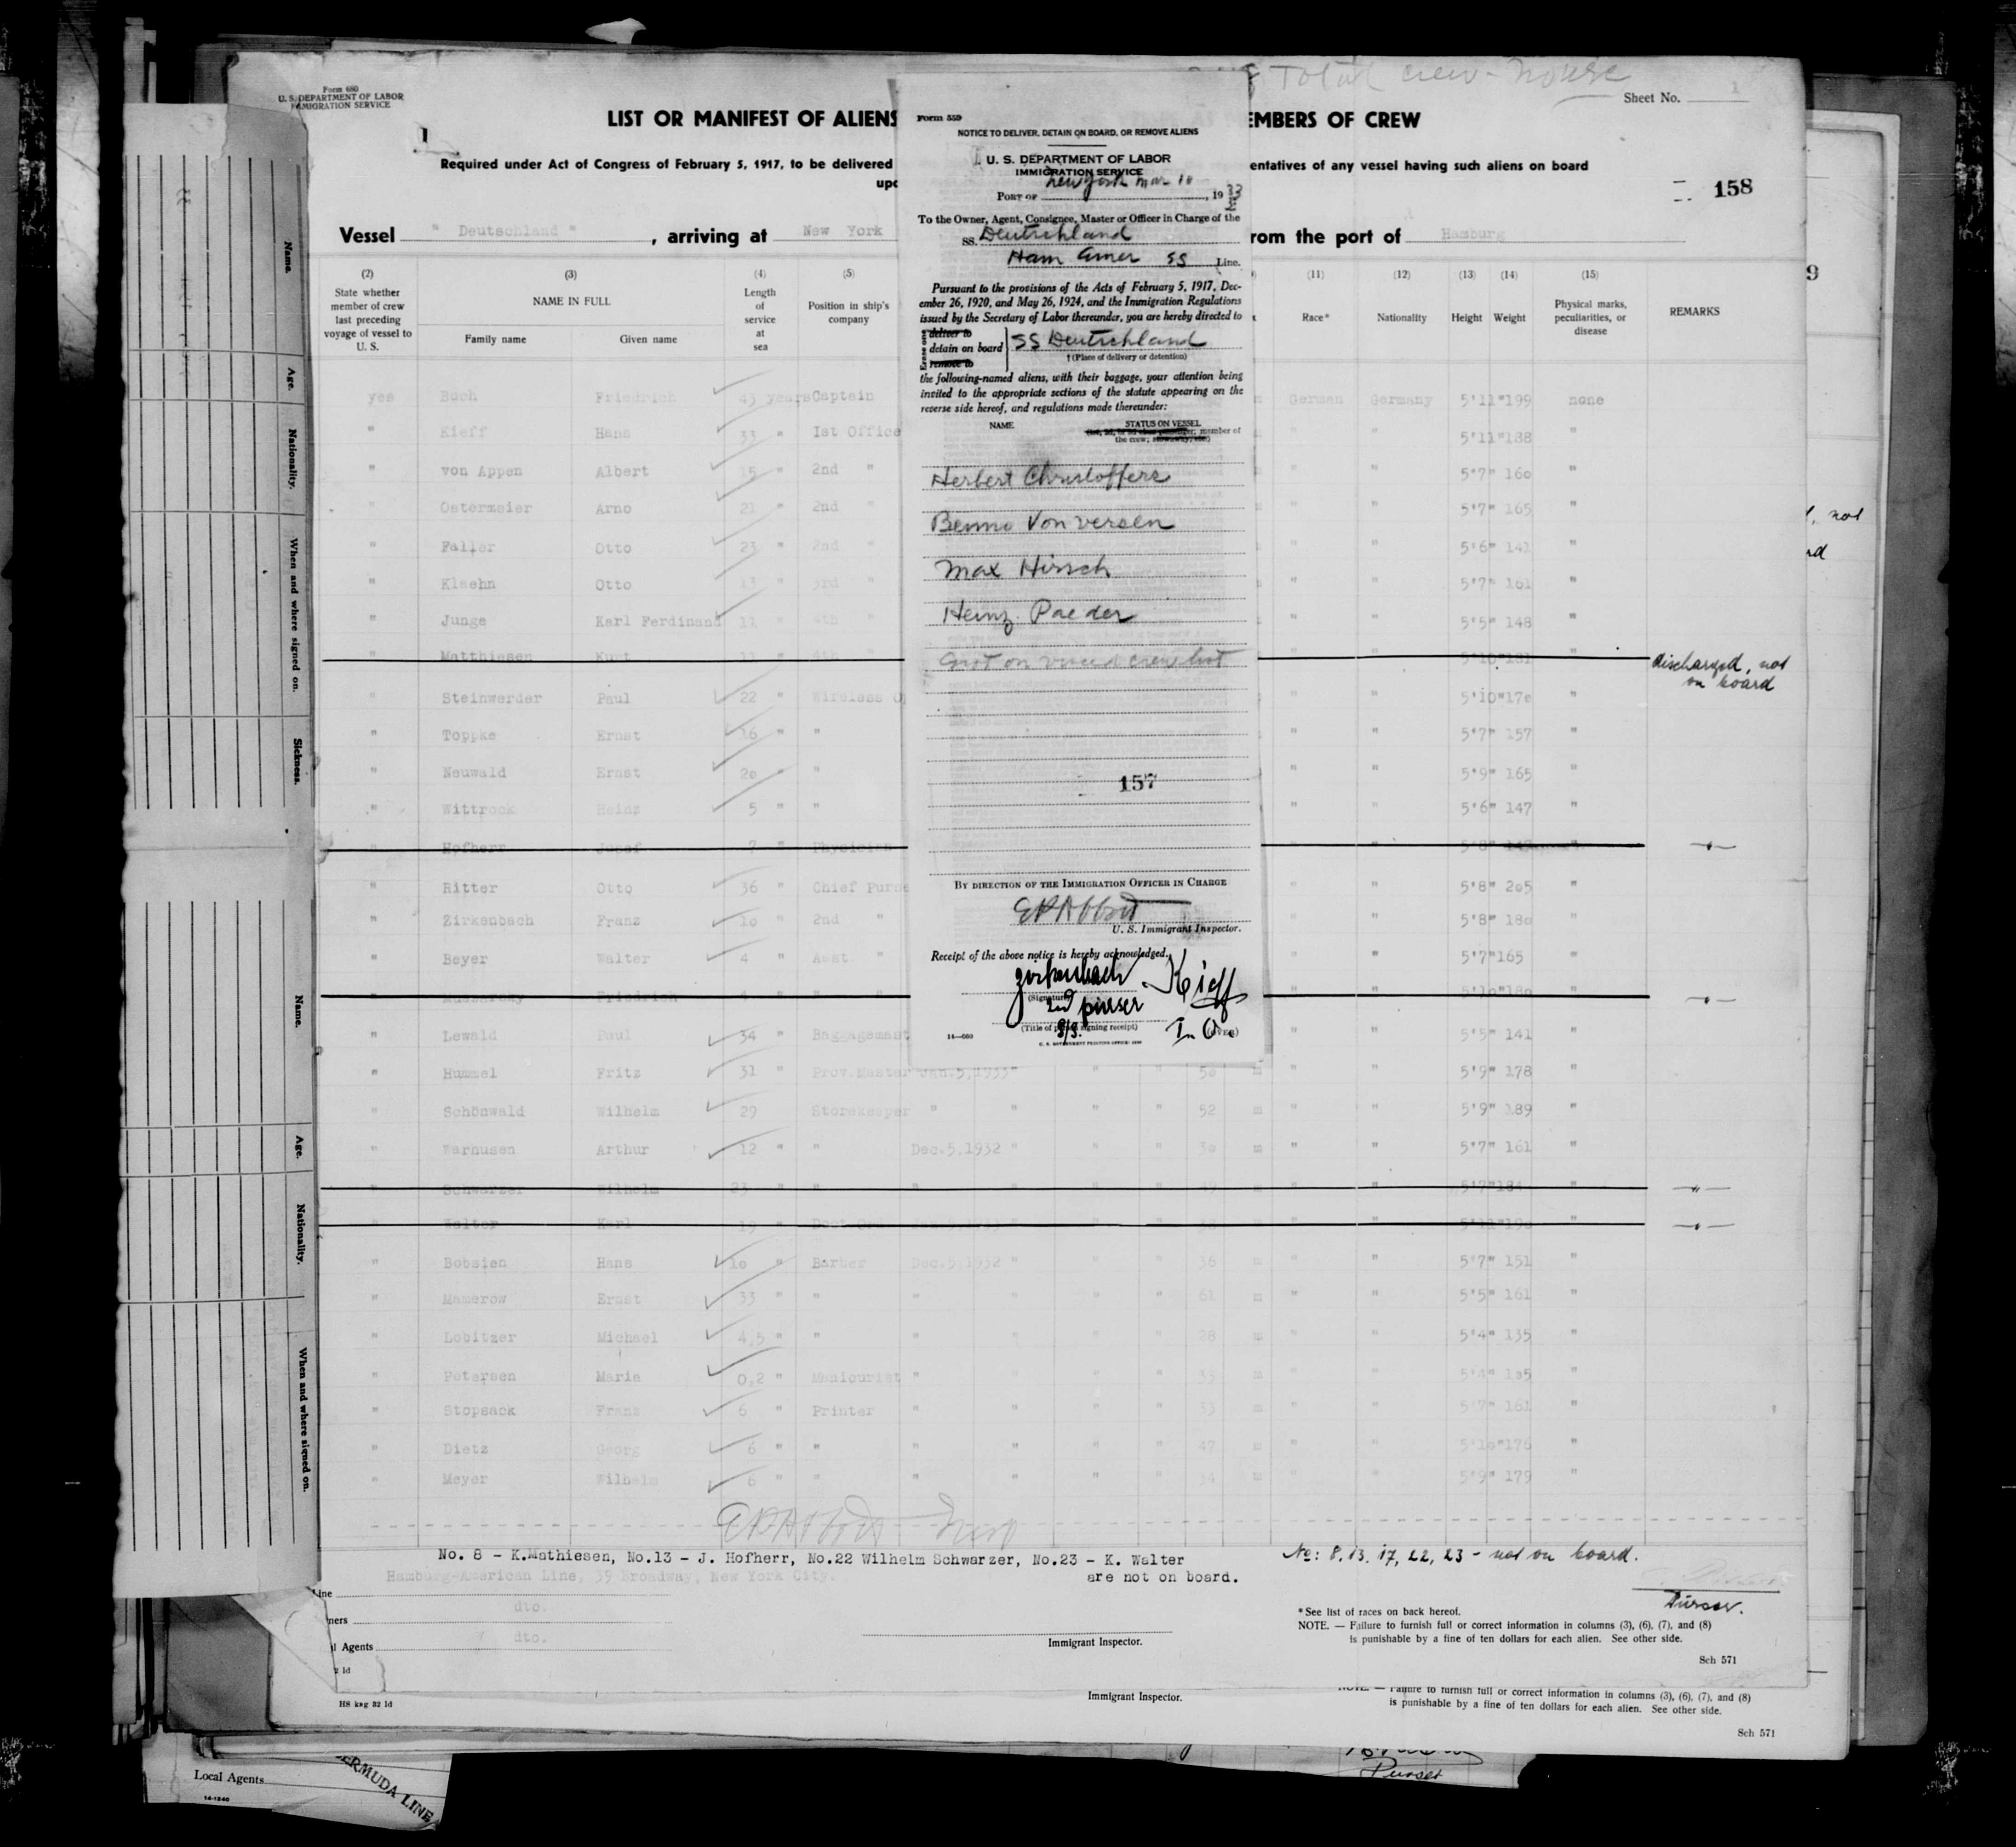 Total crew - nouse
Form 680
U. S. DEPARTMENT OF LABOR
IMMIGRATION SERVICE
Sheet No. 1
1
LIST OR MANIFEST OF ALIENS
EMBERS OF CREW
Required under Act of Congress of February 5, 1917, to be delivered
entatives of any vessel having such aliens on board
upo
158
Vessel " Deutschland " , arriving at New York
rom the port of Hamburg
(2) (3) (4) (5)
(11) (12) (13) (14) (15)
State whether member of crew last preceding voyage of vessel to U. S.
NAME IN FULL
Family name Given name
Length of service at sea
Position in ship's company
Race* Nationality Height Weight
Physical marks, peculiarities, or disease
REMARKS
yes Buch Friedrich 43 years Captain German Germany 5'11" 199 none
" Kieff Hans 33 " 1st Office " " 5'11" 188 "
" von Appen Albert 15 " 2nd " " " 5'7" 160 "
" Ostermeier Arno 21 " 2nd " " " 5'7" 165 "
" Faller Otto 23 " 2nd " " " 5'6" 141 "
" Klaehn Otto 13 " 3rd " " " 5'7" 161 "
" Junge Karl Ferdinand 11 " 4th " " " 5'5" 148 "
" Matthiesen Kurt 11 " 4th " " " 5'10" 181 " discharged, not
on board
" Steinwerder Paul 22 " Wireless O " " 5'10" 170 "
" Toppke Ernst 16 " " " " 5'7" 157 "
" Neuwald Ernst 20 " " " " 5'9" 165 "
" Wittrock Heinz 5 " " " " 5'6" 147 "
" Hofherr Josef 7 " Physician " " 5'8"
" Ritter Otto 36 " Chief Purse " " 5'8" 205 "
" Zirkenbach Franz 10 " 2nd " " " 5'8" 180 "
" Beyer Walter 4 " Asst. " " " 5'7" 165 "
" Friedrich 4 " " " " " 5'10" 180 "
" Lewald Paul 34 " Baggagemast " " 5'5" 141 "
" Hummel Fritz 31 " Prov.Master Jan.5,1933 " " " 50 m " " 5'9" 178 "
" Schönwald Wilhelm 29 Storekeeper " " " " 52 m " " 5'9" 189 "
" Warnusen Arthur 12 " " Dec.5,1932 " " " 30 m " " 5'7" 161 "
" Schwarzer Wilhelm 23 " " " " " " 49 m " " 5'7" 184 " "
" Walter Karl 19 " " " " " m " " " "
" Bobsien Hans 10 " Barber Dec.5,1932 " " " 36 m " " 5'7" 151 "
" Mamerow Ernst 33 " " " " " " 61 m " " 5'5" 161 "
" Lobitzer Michael 4,5 " " " " " " 28 m " " 5'4" 135 "
" Petersen Marie 0,2 " Manicurist " " " " 33 m " " 5'4" 105 "
" Stopsack Franz 6 " Printer " " " " 33 m " " 5'7" 161 "
" Dietz Georg 6 " " " " " " 47 m " " 5'10" 176 "
" Meyer Wilhelm 6 " " " " " " 34 m " " 5'9" 179 "
No. 8 - K.Mathiesen, No.13 - J. Hofherr, No.22 Wilhelm Schwarzer, No.23 - K. Walter
are not on board.
No: 8, 13, 17, 22, 23 - not on board.
Purser.
Hamburg-American Line, 39 Broadway, New York City.
Line
ners dto.
l Agents dto.
Immigrant Inspector.
*See list of races on back hereof.
NOTE. — Failure to furnish full or correct information in columns (3), (6), (7), and (8)
is punishable by a fine of ten dollars for each alien. See other side.
Sch 571
2 ld
HS ksg 32 ld
Immigrant Inspector.
NOTE. — Failure to furnish full or correct information in columns (3), (6), (7), and (8)
is punishable by a fine of ten dollars for each alien. See other side.
Sch 571
Purser
Local Agents
14-1240
ERMUDA LINE
Form 559
NOTICE TO DELIVER, DETAIN ON BOARD, OR REMOVE ALIENS
U. S. DEPARTMENT OF LABOR
IMMIGRATION SERVICE
PORT OF New York Mar 10, 1933
To the Owner, Agent, Consignee, Master or Officer in Charge of the
SS. Deutschland
Ham Amer SS Line.
Pursuant to the provisions of the Acts of February 5, 1917, Dec-
ember 26, 1920, and May 26, 1924, and the Immigration Regulations
issued by the Secretary of Labor thereunder, you are hereby directed to
deliver to
detain on board SS Deutschland
remove to
† (Place of delivery or detention)
the following-named aliens, with their baggage, your attention being
invited to the appropriate sections of the statute appearing on the
reverse side hereof, and regulations made thereunder:
NAME STATUS ON VESSEL
member of
the crew;
Herbert Christoffers
Benno Von versen
Max Hirsch
Heinz Paeder
not on visaed crew list
157
BY DIRECTION OF THE IMMIGRATION OFFICER IN CHARGE
E P Abbott
U. S. Immigrant Inspector.
Receipt of the above notice is hereby acknowledged.
Zirkenbach Kieff
(Signature)
2nd purser
(Title of person signing receipt)
I. O.
(OVER)
14—660
U. S. GOVERNMENT PRINTING OFFICE: 1930
Name.
Age.
Nationality.
When and where signed on.
Sickness.
Name.
Age.
Nationality.
When and where signed on.
9
, not
rd